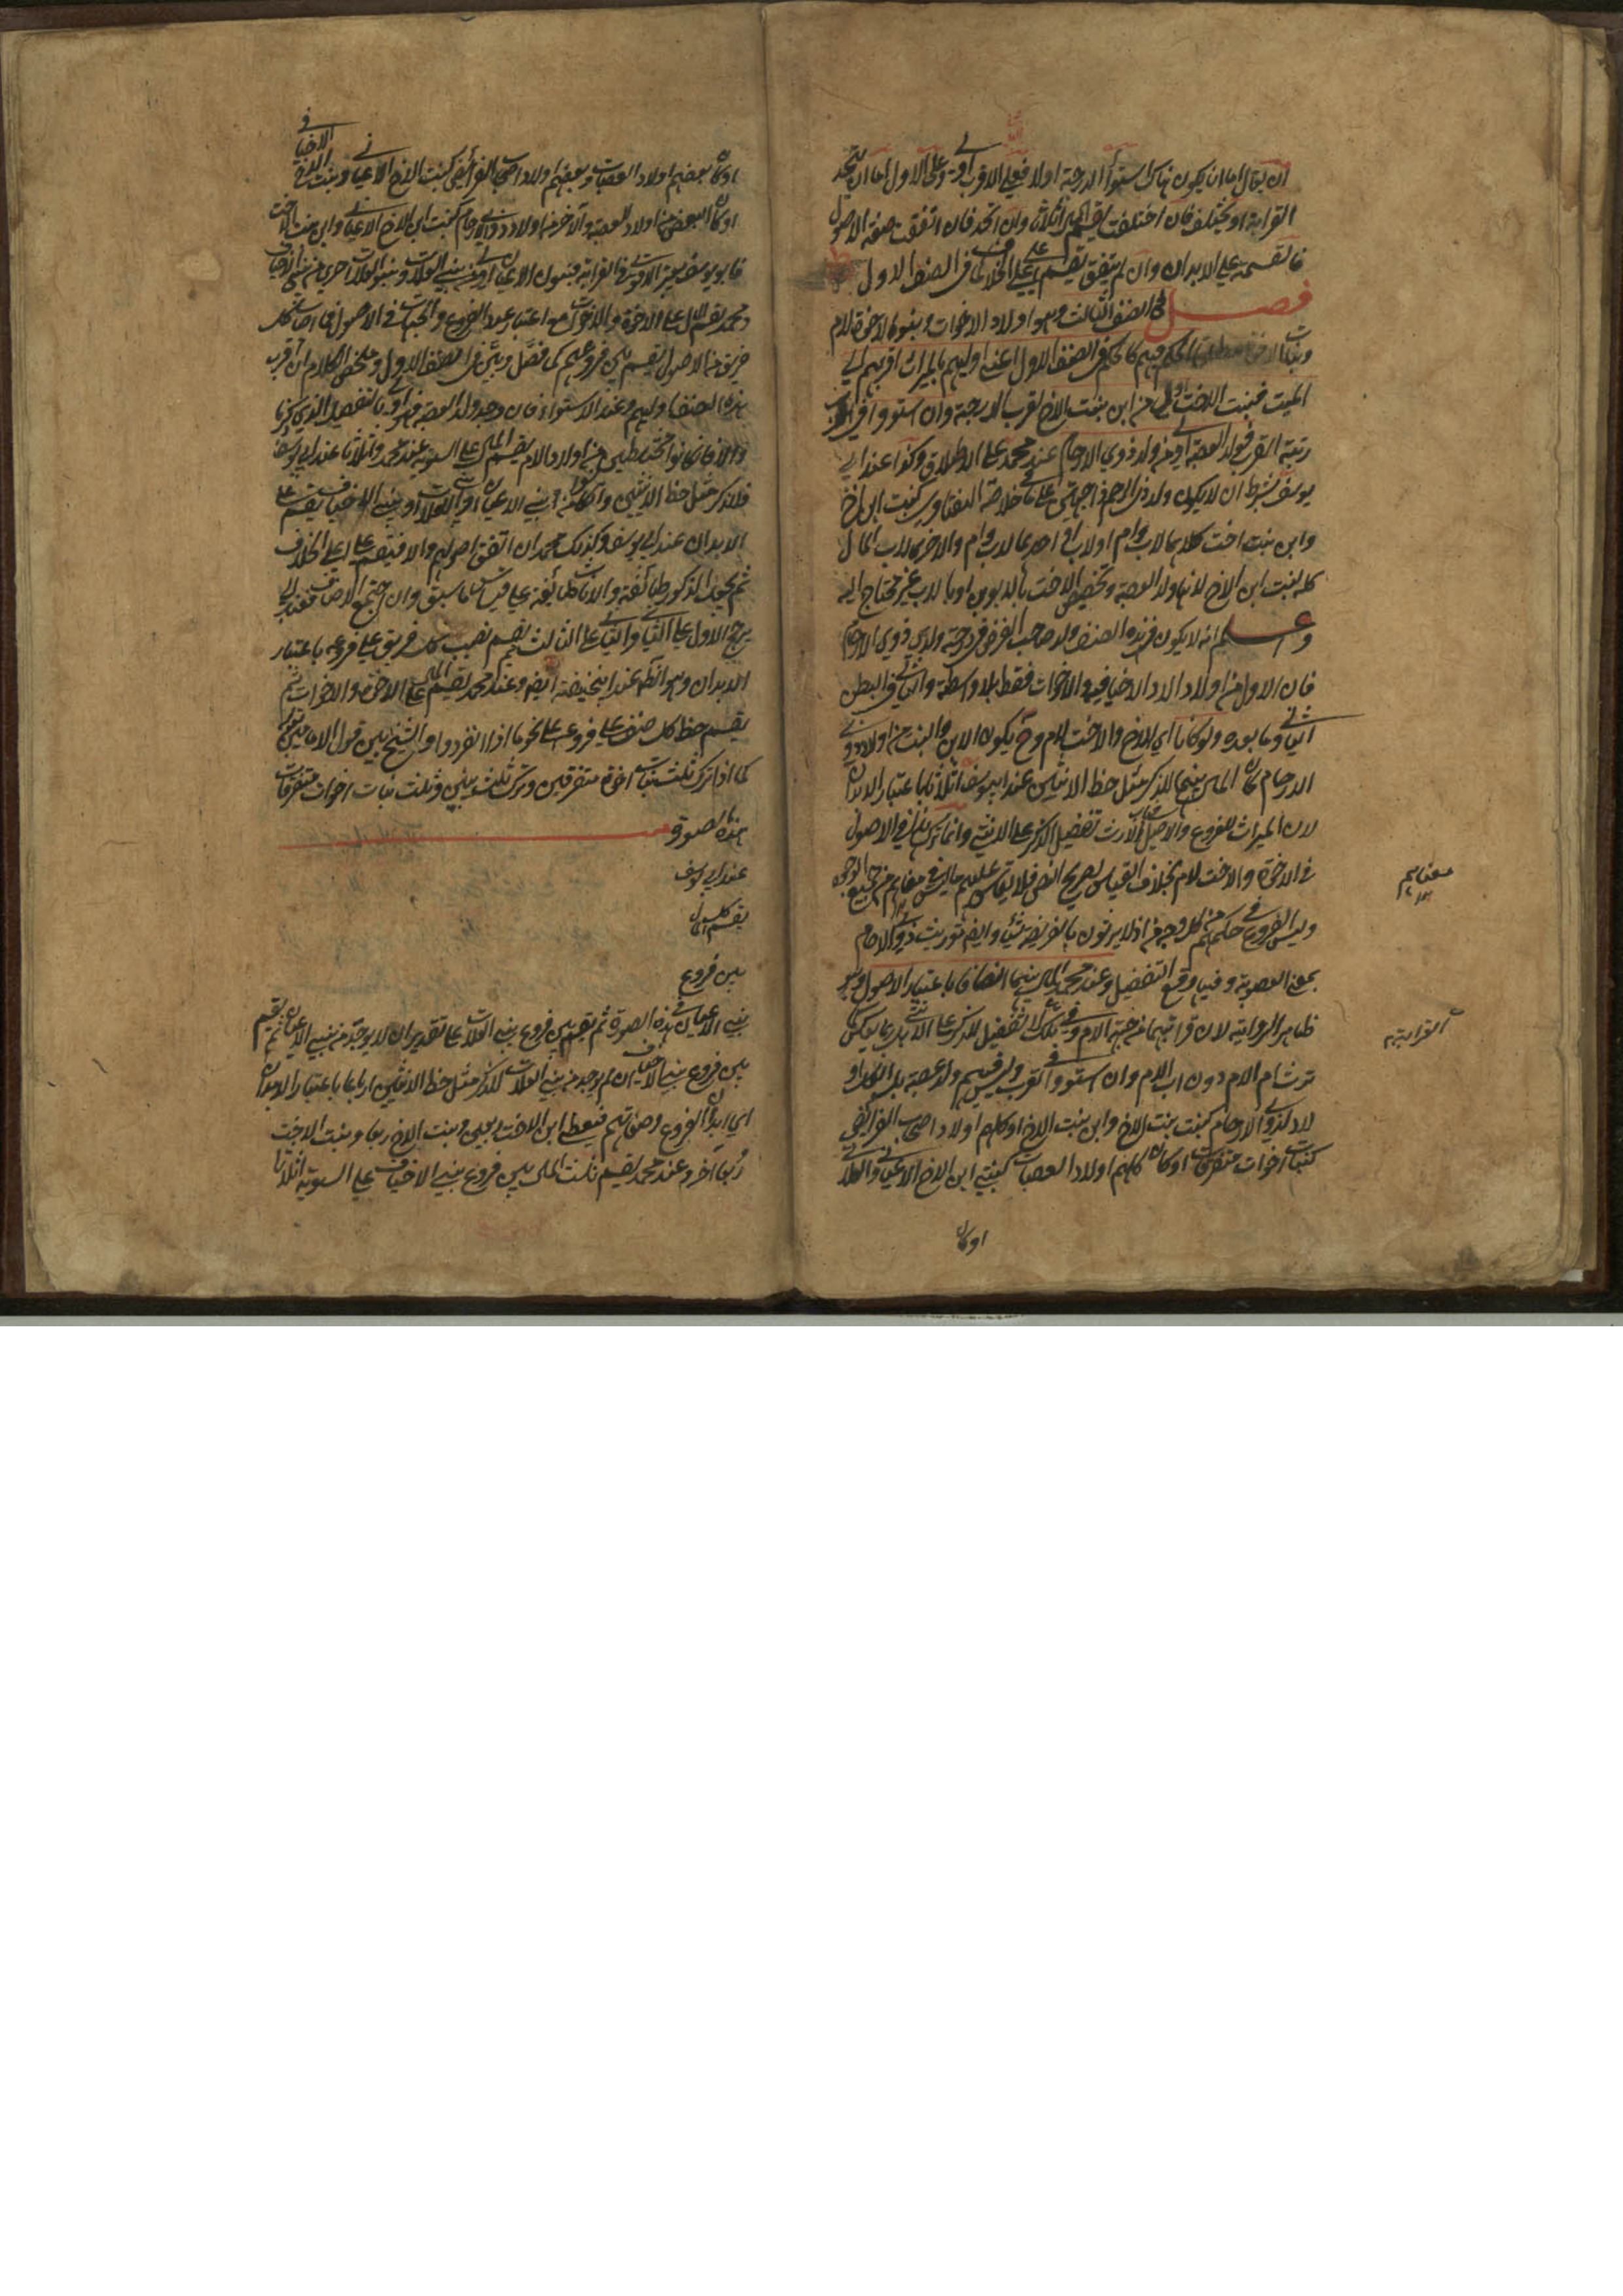 ان يقال اما ان يكون هناك استووا في الدرجة اولا فعلى الاقرب اولى وعلى الاول اما ان يتحد
القرابة او يختلف فان اختلفت يقسم المال اثلاثا وان اتحد فان اتفقت صفة الاصول
فالقسمة على الابدان وان لم يتفق يقسم على اعلى الخلاف كما في الصنف الاول
فصل في الصنف الثالث وهو اولاد الاخوات وبنو الاخوة لام
وبنات الاخوة الحكم فيهم كالحكم في الصنف الاول اعني اوليهم بالميراث اقربهم الى
الميت فبنت الاخت اولى من ابن بنت الاخ لقرب الدرجة وان استووا في
رتبة القرب فولد العصبة اولى من ولد ذوي الارحام عند محمد على الاطلاق وكذا عند ابي
يوسف بشرط ان لا يكون ولد ذي الرحم على ما في خلاصة الفتاوى كبنت ابن اخ
وابن بنت اخت كلاهما لاب وام او لاب او احدهما لاب وام والاخر لاب المال
كله لبنت ابن الاخ لانها ولد العصبة وتخصيص الاخت بالابوين او بالاب غير محتاج اليه
واعلم انه لا يكون في هذه الصنف ولد صاحب الفرض في درجة ولد ذوي الارحام
فان الاول من اولاد الاخيافي والاخوات فقط بلا واسطة والثاني في البطن
الثاني وما بعده ولو كانا اي الاخ والاخت لام وح يكون الابن والبنت من اولاد ذوي
الارحام كان المال بينهما للذكر مثل حظ الانثيين عند ابي يوسف اثلاثا باعتبار الابدان
لان الميراث للفروع والاصل في الارث تفضيل الذكر على الانثى وانما ترك ذلك في الاصول
في الاخوة والاخت لام بخلاف القياس لصريح النص فلا يقاس عليهم ما ليس في معناهم من جميع الوجوه
وليس الفروع في حكمهم من كل وجه اذ لا يرثون بالفريضة شيئا وايضا توريث ذوي الارحام
بمعنى العصوبة وفيها وقع التفضيل وعند محمد المال بينهما انصافا باعتبار الاصول وهو
ظاهر الرواية لان قرابتهما من جهة الام وفي ذلك لا تفضيل للذكر على الانثى بل ربما يعكس
ترث ام الام دون اب الام وان استووا في القرب وليس فيهم ولد عصبة بل الكل او
لاد لذوي الارحام كبنت بنت الاخ وابن بنت الاخ او كلهم اولاد اصحاب الفرائض
كبنات اخوات متفرقات او كان كلهم اولاد العصبات كبنتي ابن الاخ الاعياني والعلاتي
او كان
معناهم
القرابتهم
او كان بعضهم اولاد العصبات وبعضهم اولاد اصحاب الفرائض كبنت الاخ الاعياني وبنت الاخ الاخيافي
او كان البعض منها اولاد العصبة والآخر منها اولاد ذوي الارحام كبنت ابن الاخ الاعياني وابن بنت الاخت
فابو يوسف يعتبر الاقوى في القرابة فبنوا الاعيان اولى من بني العلات وبنو العلات احرى من بني الاخياف
ومحمد يقسم المال على الاخوة والاخوات مع اعتبار عدد الفروع والجهات في الاصول فما اصاب كل
فريق من الاصول يقسم بين فروعهم كما فصل وبين في الصنف الاول وملخص الكلام ان اقرب
هذه الصنف اوليهم وعند الاستواء فان وجد ولد العصبة فهو اولى بالتفصيل الذي ذكرنا
والا فان كانوا مختلطين من اولاد الام يقسم المال على السوية عند محمد واثلاثا عند ابي يوسف
فللذكر مثل حظ الانثيين وان كانوا من بني الاعيان او بني العلات او بني الاخياف يقسم على
الابدان عند ابي يوسف وكذلك محمد ان اتفق اصولهم والا فيقسم على اعلى الخلاف
ثم يجعل الذكور طائفة والاناث طائفة على قياس ما سبق وان اجتمع الاصناف فعند ابي
يرجح الاول على الثاني والثاني على الثالث ثم يقسم نصيب كل فريق على فروعه باعتبار
الابدان وهو الظاهر عند ابي حنيفة ايضا وعند محمد يقسم المال على الاخوة والاخوات ثم
يقسم حظ كل صنف على فروعه على نحو ما اذا انفردوا والشيخ بين قول الامامين بقوله
كما اذا ترك ثلث بنات اخوة متفرقين وترك ثلث بنين وثلث بنات اخوات متفرقات
بهذه الصورة
عند ابي يوسف
يقسم كل المال
بين فروع
بني الاعيان في هذه الصورة ثم يقسم بين فروع بني العلات على تقدير ان لا يوجد من بني الاعيان ثم يقسم
بين فروع بني الاخياف ان لم يوجد من بني العلات للذكر مثل حظ الانثيين ارباعا باعتبار الابدان
اي ابدان الفروع وصفاتهم فيعطى ابن الاخت ربعين وبنت الاخ ربعا وبنت الاخت
ربعا آخر وعند محمد يقسم ثلث المال بين فروع بني الاخياف على السوية اثلاثا